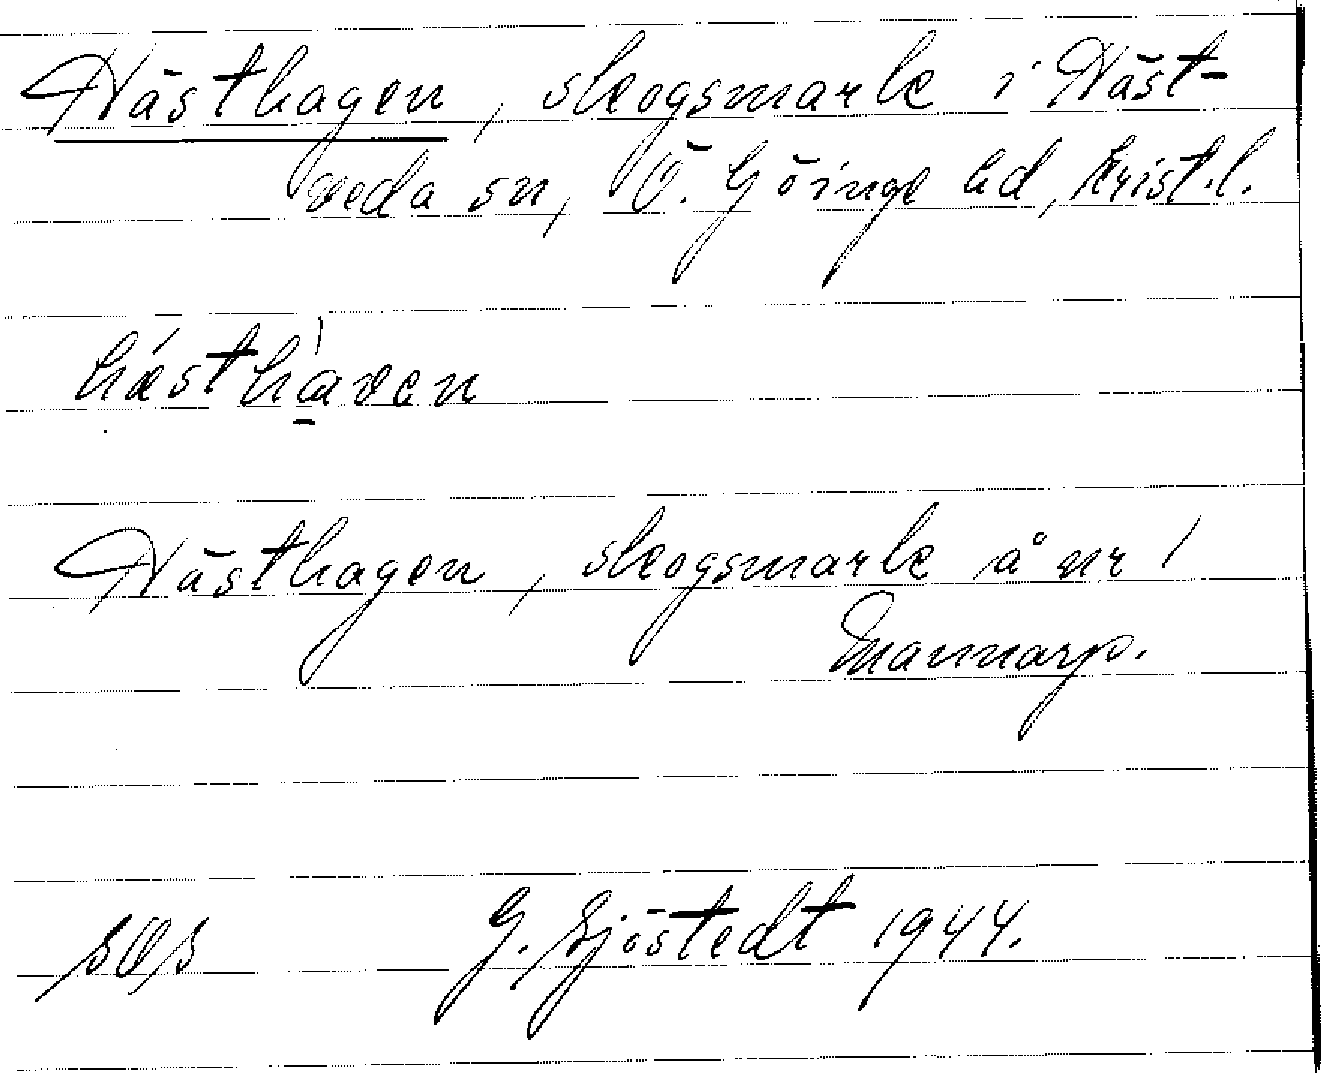 Hästhagen, skogsmark i Häst-
veda sn, Ö. Göinge hd, Krist.l.
hästha̱ven
Hästhagen, skogsmark å nr 1
Mannarp.
G. Sjöstedt 1944.